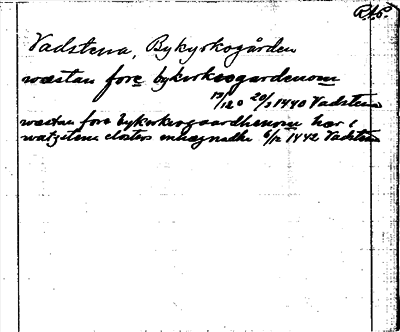 R.A.P.
Vadstena, Bykyrkogården
wæstan fore bykirkiogardenom
20/3 1440 Vadstena
wæstan fore bykirkiogaardhenom hær i
watzstena closters 6/12 1442 Vadstena